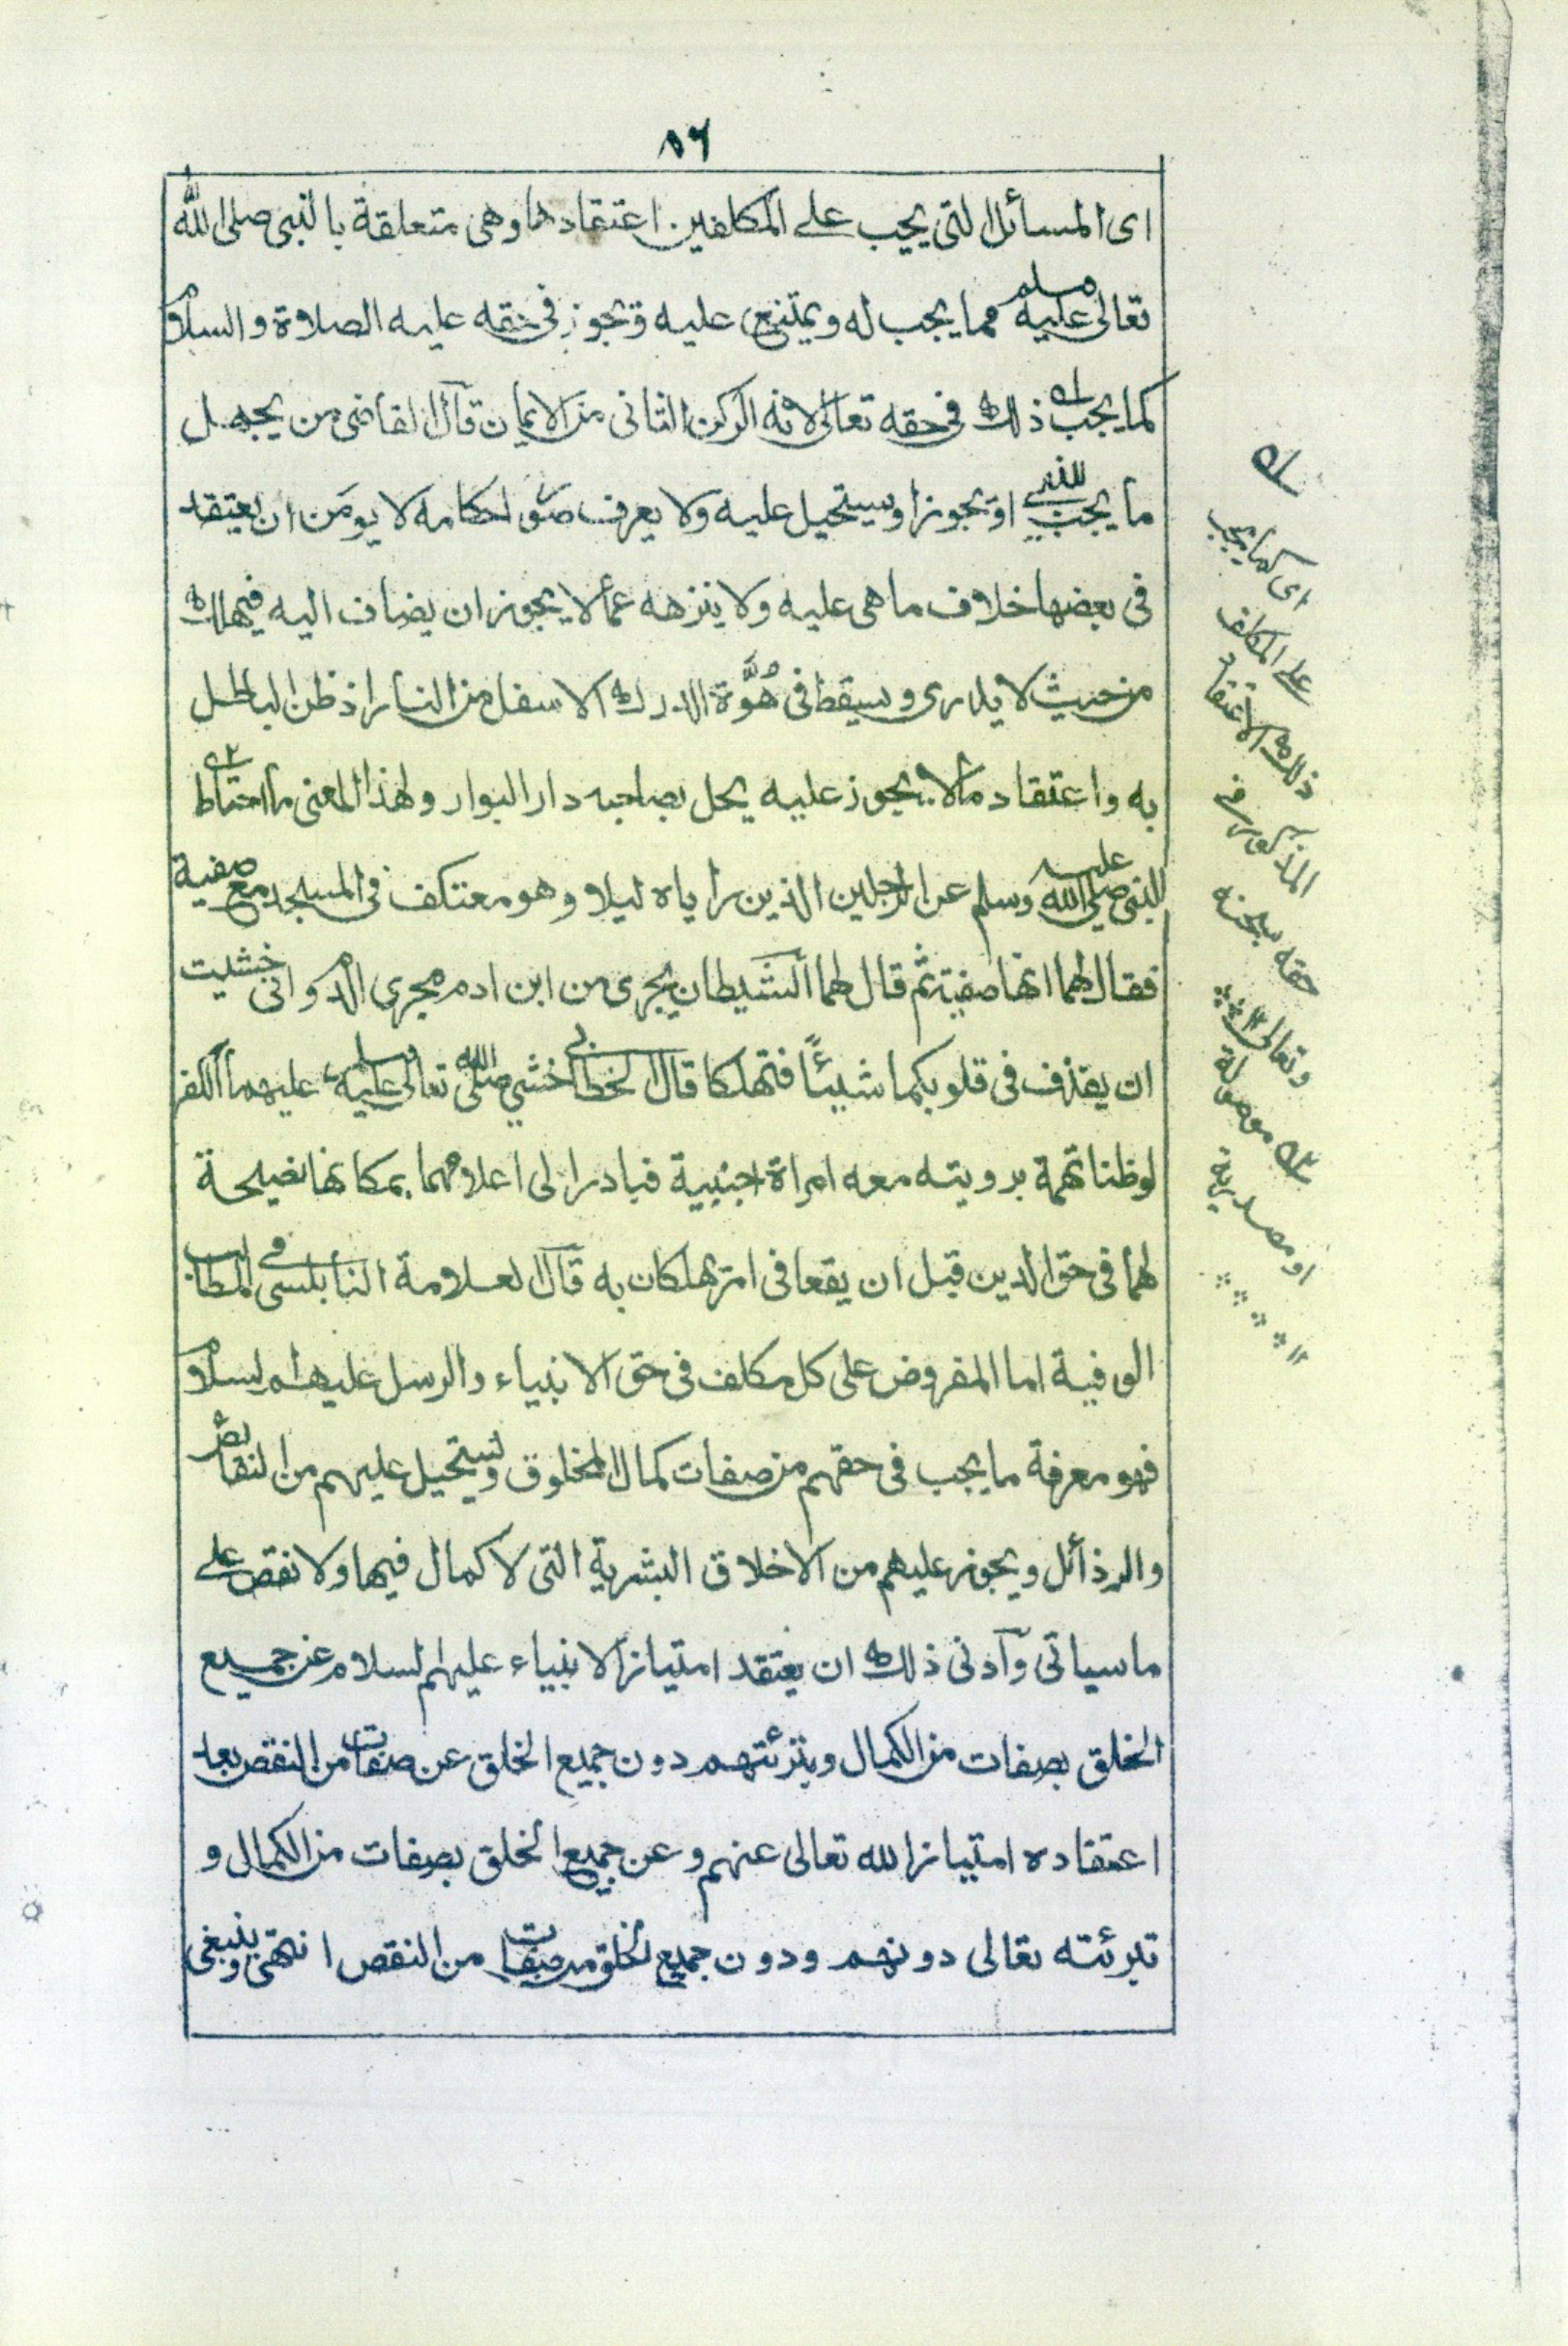 ٨٦
اى المسائل التى يجب على المكلفين اعتقادها وهى متعلقة بالنبى صلى الله
تعالى عليه وسلم مما يجب له ويمتنع عليه ويجوز فى حقه عليه الصلاة والسلام
كما يجب ذلك فى حقه تعالى لانه الركن الثانى من الايمان قال القاضى من يجهل
ما يجب للنبى او يجوز او يستحيل عليه ولا يعرف صور احكامه لا يومن ان يعتقد
فى بعضها خلاف ما هى عليه ولا ينزهه عما لا يجوز ان يضاف اليه فيهلك
من حيث لا يدرى ويسقط فى هُوَّة الدرك الاسفل من النار اذ ظن الباطل
به واعتقاد ما لا يجوز عليه يحل بصاحبه دار البوار ولهذا المعنى ما احتاط
النبى صلى الله عليه وسلم عن الرجلين الذين راياه ليلا وهو معتكف فى المسجد مع صفية
فقال لهما انها صفية ثم قال لهما الشيطان يجرى من ابن ادم مجرى الدم وانى خشيت
ان يقذف فى قلوبكما شيئاً فتهلكا قال الخطابى خشى صلى الله تعالى عليه وسلم عليهما الكفر
لوظنا تهمة برويته معه امراة اجنبية فبادر الى اعلامهما بمكانها نصيحة
لهما فى حق الدين قبل ان يقعا فى امر يهلكان به قال العلامة النابلسى فى المطالب
الوفية اما المفروض على كل مكلف فى حق الانبياء والرسل عليهم السلام
فهو معرفة ما يجب فى حقهم من صفات كمال المخلوق ويستحيل عليهم من النقائص
والرذائل ويجوز عليهم من الاخلاق البشرية التى لا كمال فيها ولا نقص على
ما سياتى وادنى ذلك ان يعتقد امتياز الانبياء عليهم السلام عن جميع
الخلق بصفات من الكمال وبتبرئتهم دون جميع الخلق عن صفات من النقص بعد
اعتقاده امتياز الله تعالى عنهم وعن جميع الخلق بصفات من الكمال و
تبرئته تعالى دونهم ودون جميع الخلق من صفات من النقص انتهى وينبغى
اى كما يجب
على المكلف
ذلك الاعتقاد
المذكور فى
حقه سبحنه
وتعالى ١٢
موصولة
او مصدرية
١٢